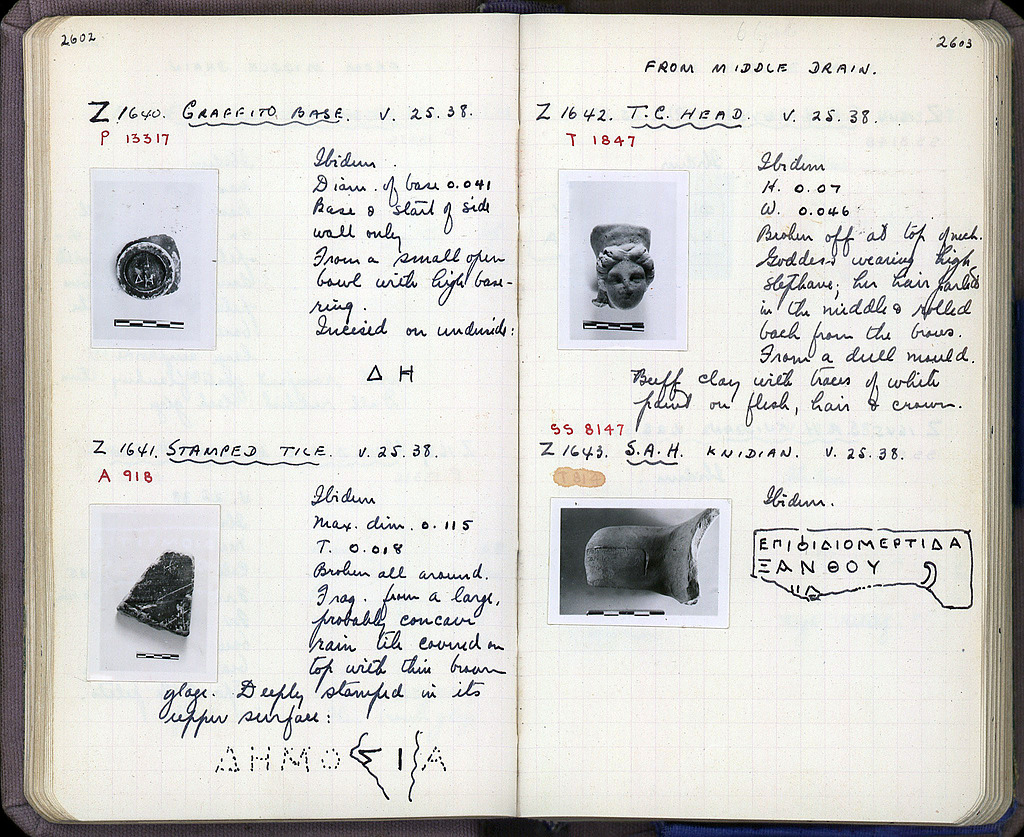 2602
Z 1640. GRAFFITO BASE. V. 25.38.
P 13317
Ibidem.
Diam. of base 0.041
Base & start of side
wall only
From a small open
bowl with high base-
ring.
Incised on underside:
Δ Η
Z 1641. STAMPED TILE. V. 25.38.
A 918
Ibidem
Max. dim. 0.115
T. 0.018
Broken all around.
Frag. from a large,
probably concave
rain tile covered on
top with thin brown
glaze. Deeply stamped in its
upper surface:
ΔΗΜΟΣΙΑ
2603
FROM MIDDLE DRAIN.
Z 1642. T.C. HEAD. V. 25.38.
T 1847
Ibidem
H. 0.07
W. 0.046
Broken off at top of neck.
Goddess wearing high
stephane; her hair parted
in the middle & rolled
back from the brows.
From a dull mould.
Buff clay with traces of white
paint on flesh, hair & crown.
SS 8147
Z 1643. S.A.H. KNIDIAN. V. 25.38.
Ibidem.
ΕΠΙΦΙΔΙΟΜΕΡΤΙΔΑ
ΞΑΝΘΟΥ